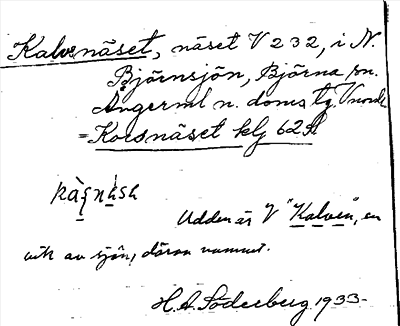 Kalvnäset, näset V 232, i N.
Björnsjön, Björna sn.
Ångerml n. doms tg. V norrl
= Korsnäset klj 62 A
Udden är V "Kalven", en
vik av sjön, därav namnet.
H. A. Söderberg 1933-